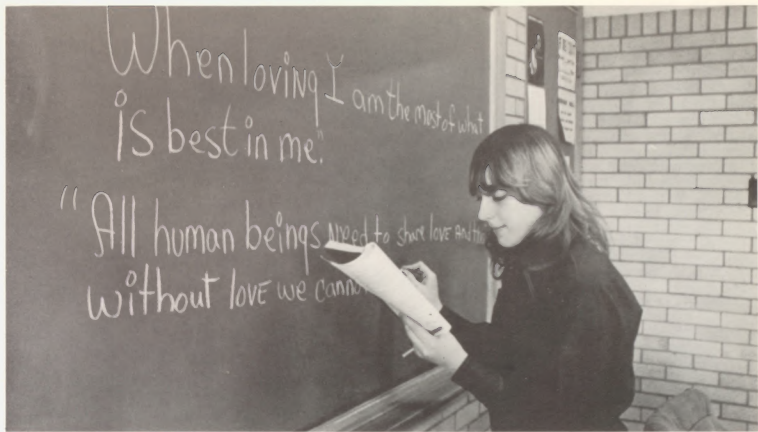 When loving I am the most of what
is best in me."
"All human beings need to share love and
without love we